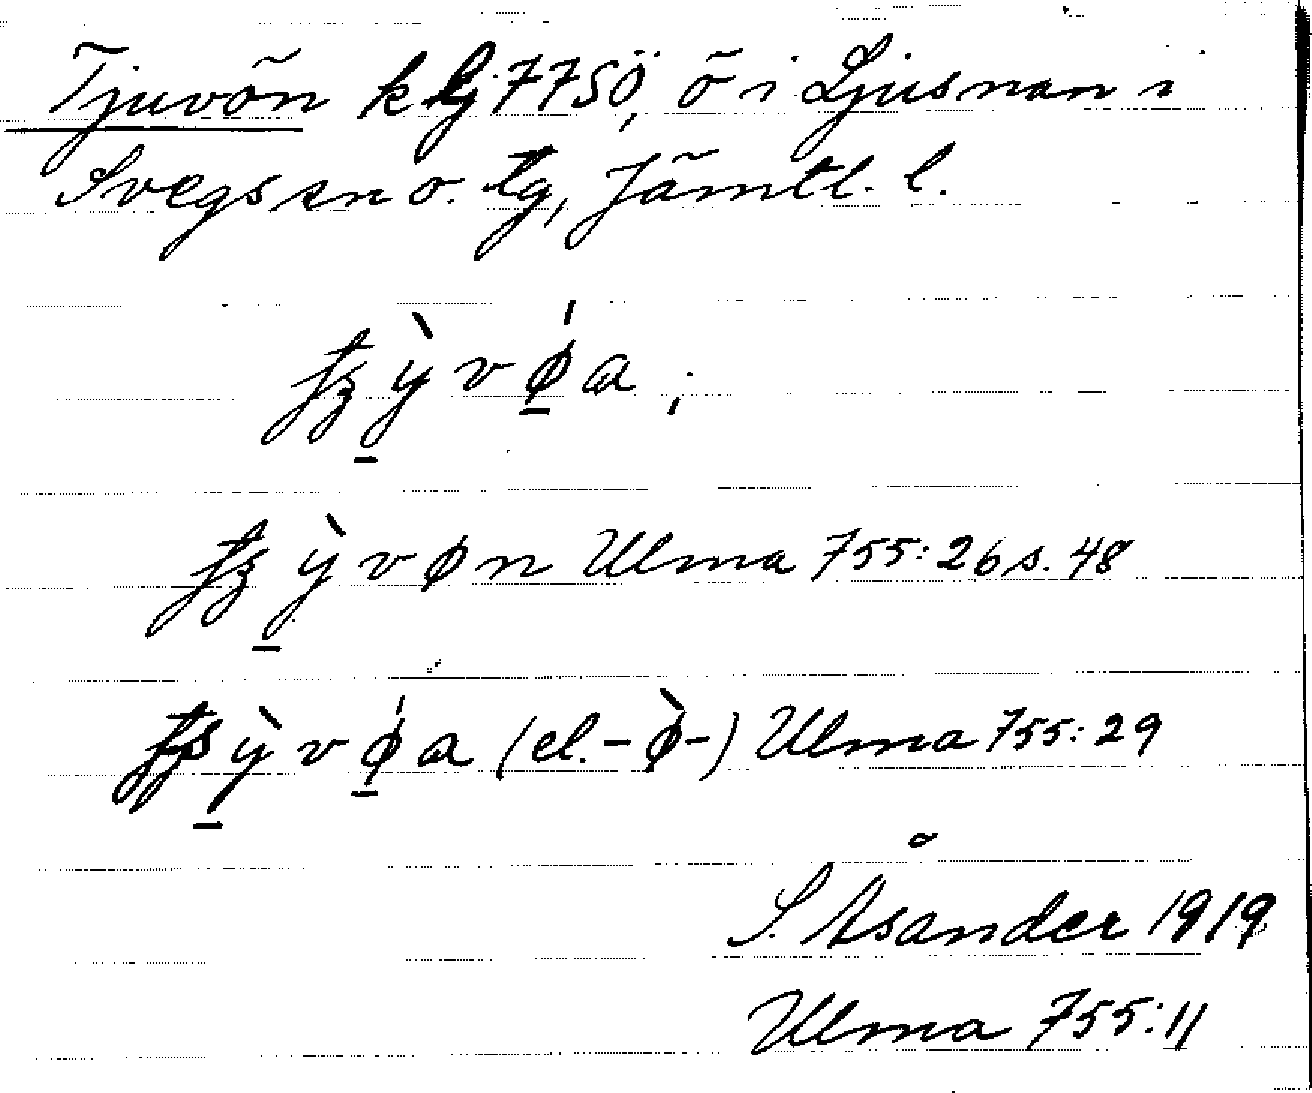 Tjuvön k lj 77SÖ, ö i Ljusnan i
Svegs sn o. tg, Jämtl. l.
ỳ v ǿ a ;
ỳ v ø n Ulma 755:26 s. 48
ỳ v ǿ a (el. -ø̀-) Ulma 755:29
S. Åsander 1919
Ulma 755:11